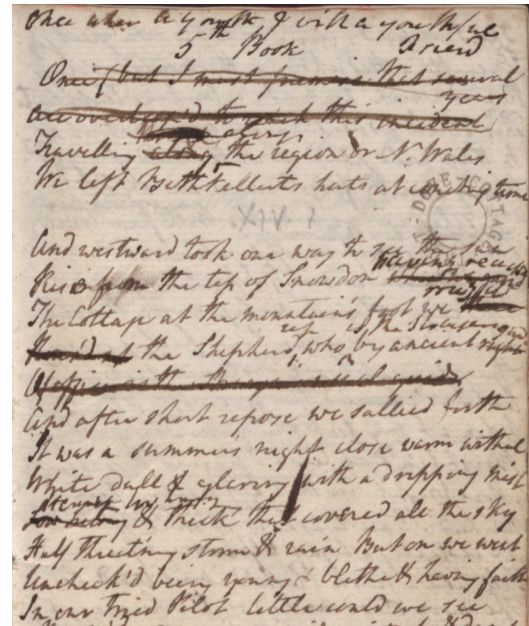 Once when a youth & with a youthful
5th Book A scene
Once (but I must premise that several
years
are overleap'd to reach this incident
along
Travelling along the region or N. Wales
We left Bethkellerts huts at couching time
XIV I
DOVE COTTAGE
And westward took our way to see the sun
Rise from the top of Snowdon having reach'd
The Cottage at the mountain's foot we
up
Rouz'd up the Shepherd, who by ancient right
Of office is the Stranger's usual guide
And after short repose we sallied forth
It was a summers night close warm withal
White dull & glaring with a dripping mist
& thick that covered all the sky
Half threat'ning storm & rain But on we went
Uncheck'd being young & blithe & having faith
In our tried Pilot little could we see